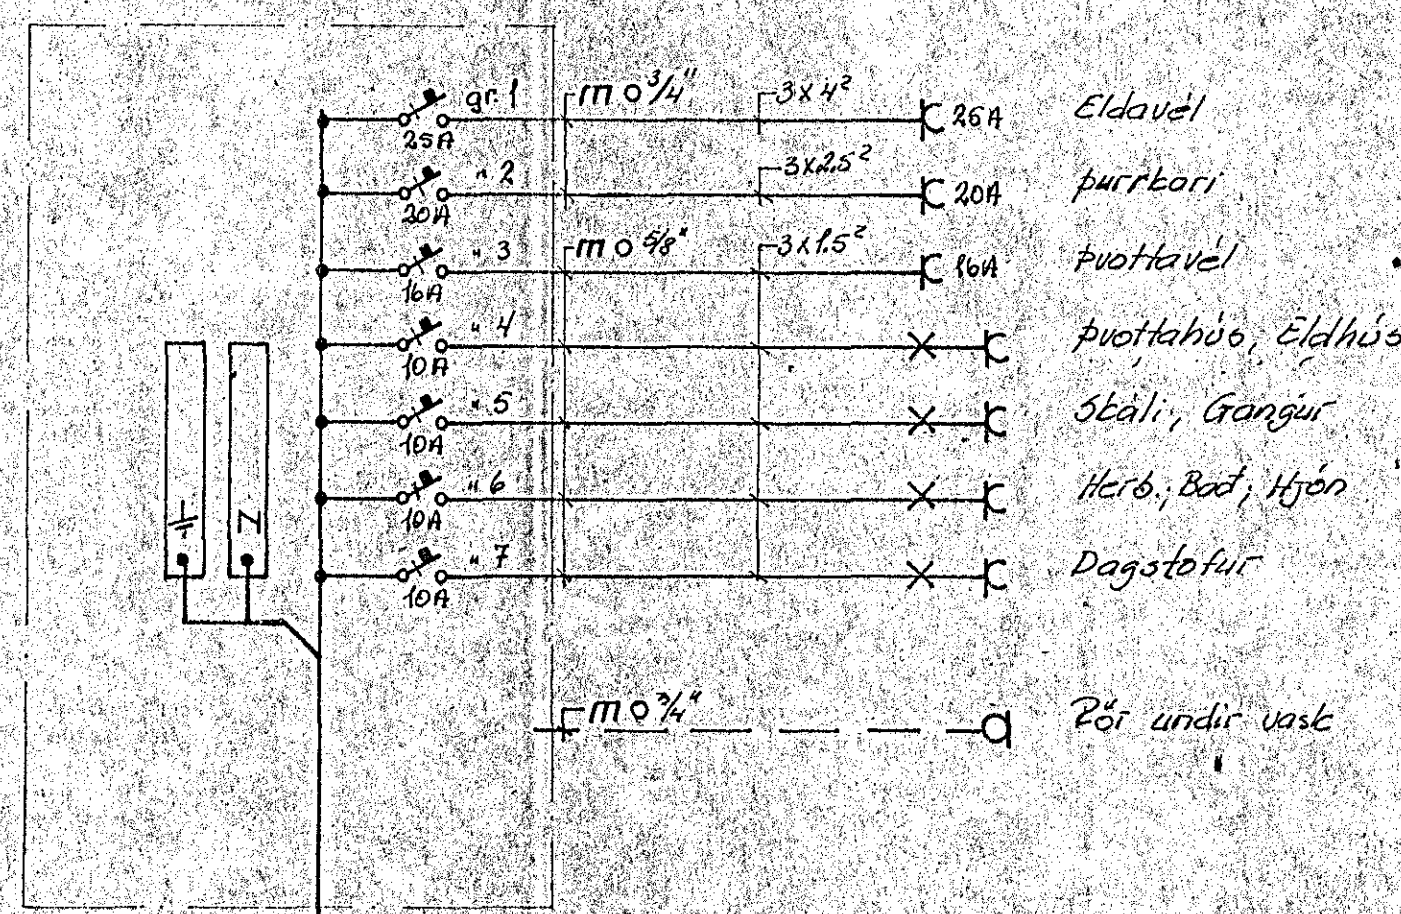 gr. 1 m o 3/4" 3 x 4² 25A Eldavél
25A
" 2 3x2.5² 20A þurrkari
20A
" 3 m o 5/8" 3x1.5² 16A þvottavél
16A
" 4 þvottahús, Eldhús
10A
" 5 Skáli, Gangur
10A
" 6 Herb.; Bað; Hjón
10A
" 7 Dagstofur
10A
N
m o 3/4" Rör undir vask